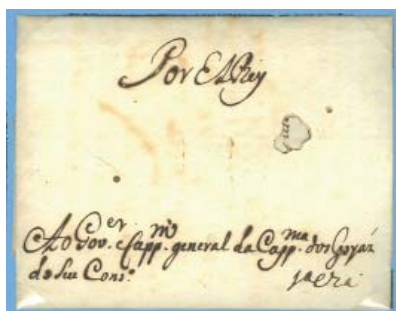 Por El Rey
Ao Gov.er e Capp.m general da Capp.nia dos Goyaz
do seu Cons.o